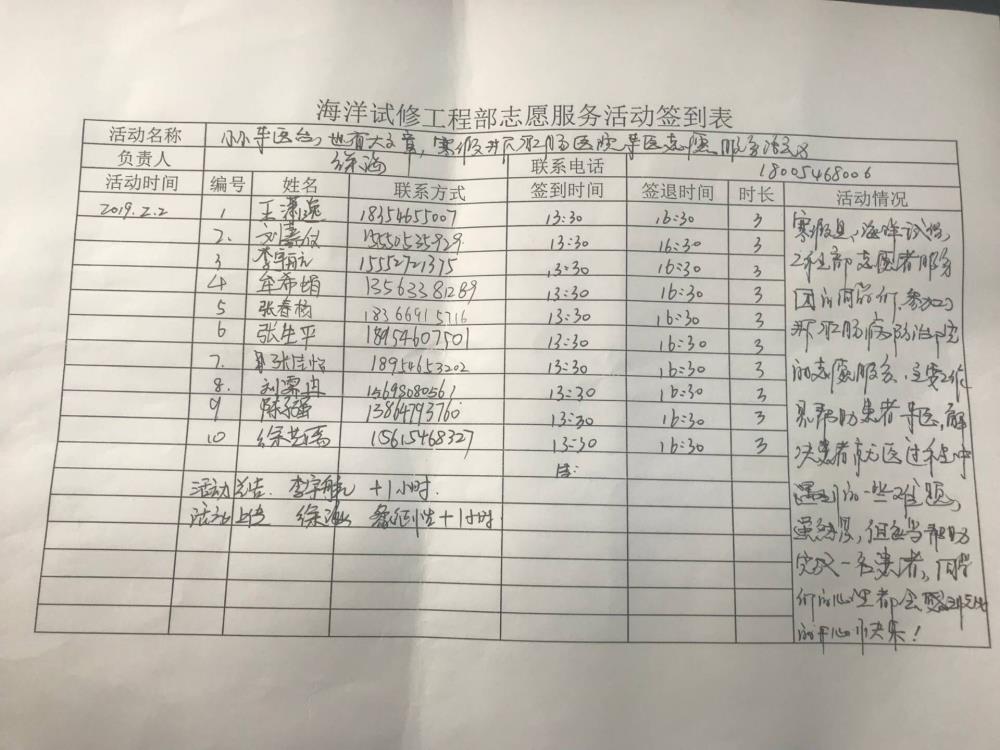 海洋试修工程部志愿服务活动签到表
活动名称 小小导医台，也有大文章，寒假开展肛肠医院导医志愿服务活动
负责人 徐 联系电话 18005468006
活动时间 编号 姓名 联系方式 签到时间 签退时间 时长 活动情况
2019.2.2 1 王潇逸 18354655007 13:30 16:30 3
2. 刘嘉仪 15550535929 13:30 16:30 3
3 李宇航 15552721375 13:30 16:30 3
4 牟希娟 13563381289 13:30 16:30 3
5 张春梅 18366915716 13:30 16:30 3
6 张生平 18954607501 13:30 16:30 3
7. 张佳怡 18954653202 13:30 16:30 3
8. 刘霖冉 15698080561 13:30 16:30 3
9 陈强 13864793760 13:30 16:30 3
10 徐 15615468327 13:30 16:30 3
活动总结. 李宇航 +1小时.
活动上传 徐 签到性+1小时
寒假里，海洋试修
工程部志愿者服务
团的同的们，参加了
肛肠病防治院
的志愿服务，主要工作
是帮助患者导医，解
决患者就医过程中
遇到的一些难题，
虽然累，但每当帮助
完成一名患者，同
们的心里都会感到无比
的开心和快乐！